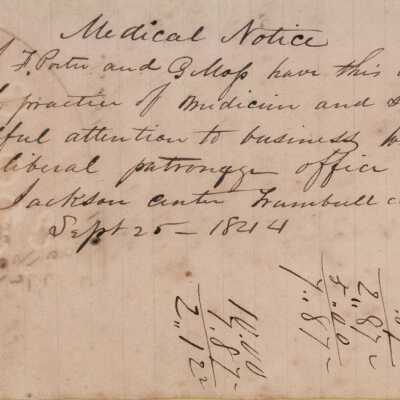 Medical Notice
F. Porter and G Moss have this
practice of Medicin and
ful attention to business
liberal patronage office
Jackson center Trumbull c
Sept 25 - 1844
10.00
7.87
2,,12
2,,87
5,,00
7,,87